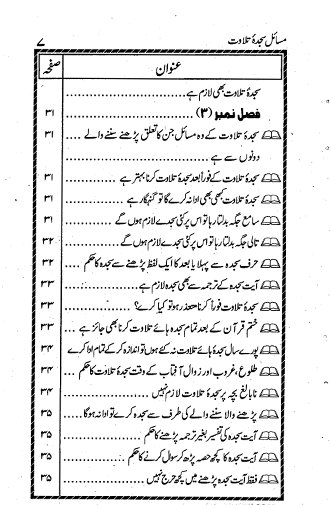 مسائل سجدۂ تلاوت ۷
عنوان صفحہ
سجدۂ تلاوت بھی لازم ہے
فصل نمبر (۳) ۳۱
سجدۂ تلاوت کے وہ مسائل جن کا تعلق پڑھنے سننے والے ۳۱
دونوں سے ہے
سجدۂ تلاوت کے فوراً بعد سجدۂ تلاوت کرنا بہتر ہے ۳۱
سجدۂ تلاوت کبھی بھی ادا نہ کرے گا تو گنہگار ہے ۳۱
سامع جگہ بدلتا رہا تو اس پر کئی سجدے لازم ہوں گے ۳۱
تالی جگہ بدلتا رہا تو اس پر کئی سجدے لازم ہوں گے ۳۲
حرف سجدہ سے پہلا یا بعد کا ایک لفظ پڑھنے سے سجدہ کا حکم ۳۲
آیت سجدہ کے ترجمہ سے بھی سجدہ لازم ہے ۳۳
سجدۂ تلاوت فوراً کرنا متعذر ہو تو کیا کرے؟ ۳۳
ختم قرآن کے بعد تمام سجدہ ہائے تلاوت کرنا بھی جائز ہے ۳۳
پورے سال سجدۂ ہائے تلاوت نہ کئے ہوں تو اندازہ کر کے تمام ادا کرے ۳۴
طلوع، غروب اور زوال آفتاب کے وقت سجدۂ تلاوت کا حکم ۳۴
نابالغ بچہ پر سجدۂ تلاوت لازم نہیں ۳۴
پڑھنے والا سننے والے کی طرف سے سجدہ کرے تو ادا نہ ہوگا ۳۵
آیت سجدہ کی تفسیر بغیر ترجمہ پڑھنے کا حکم ۳۵
آیت سجدہ کا کچھ حصہ پڑھ کر سوال کرنے کا حکم ۳۵
فقط آیت سجدہ پڑھنے میں کچھ حرج نہیں ۳۵